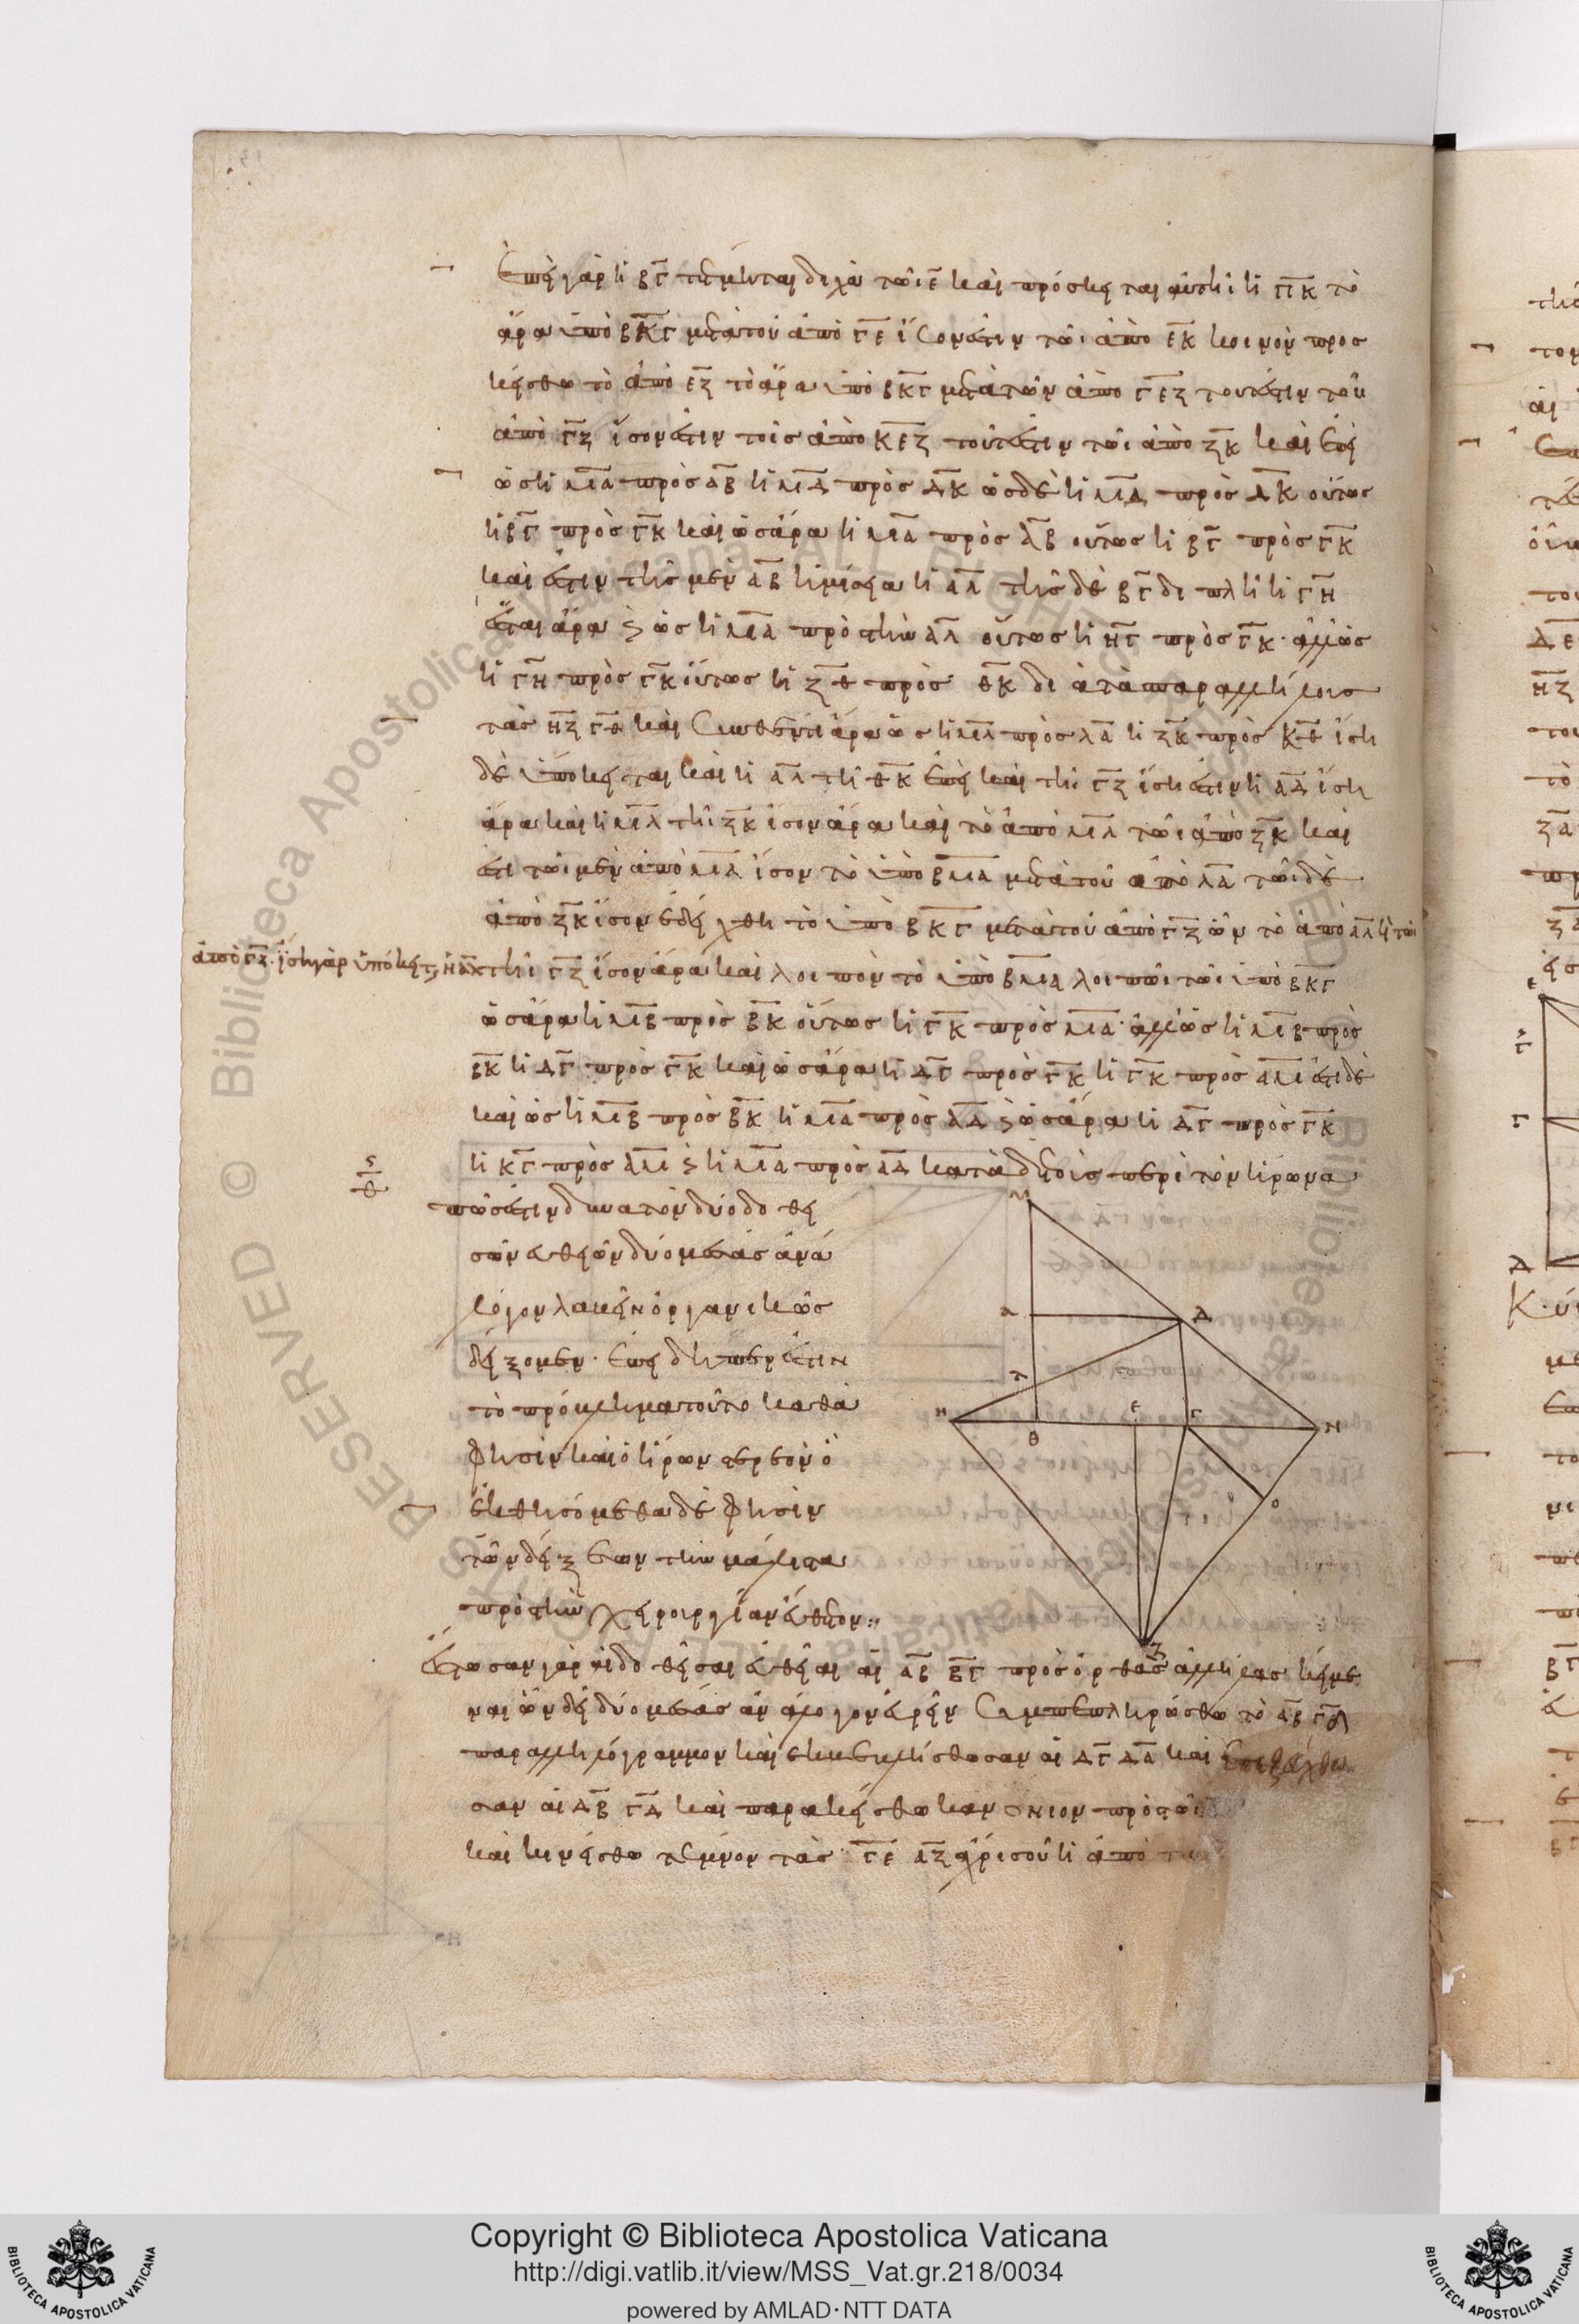 Ἐπεὶ γὰρ ἡ ΒΓ τέτμηται δίχα τῶι Ε καὶ πρόσκειται αὐτῆι ἡ ΓΚ τὸ
ἄρα ὑπὸ ΒΚΓ μετὰ τοῦ ἀπὸ ΓΕ ἴσον ἐστὶν τῶι ἀπὸ ΕΚ κοινὸν προσ
κείσθω τὸ ἀπὸ ΕΖ τὸ ἄρα ὑπὸ ΒΚΓ μετὰ τῶν ἀπὸ ΓΕΖ τουτέστιν τοῦ
ἀπὸ ΓΖ ἴσον ἐστὶν τοῖς ἀπὸ ΚΕΖ τουτέστιν τῶι ἀπὸ ΖΚ καὶ ἐπεὶ
ὡς ἡ ΜΑ πρὸς ΑΒ ἡ ΜΔ πρὸς ΔΚ ὡς δὲ ἡ ΜΔ πρὸς ΔΚ οὕτως
ἡ ΒΓ πρὸς ΓΚ καὶ ὡς ἄρα ἡ ΜΑ πρὸς ΑΒ οὕτως ἡ ΒΓ πρὸς ΓΚ
καὶ ἐστιν τῆς μὲν ΑΒ ἡμίσεια ἡ ΑΛ τῆς δὲ ΒΓ διπλῆ ἡ ΓΗ
ἔσται ἄρα καὶ ὡς ἡ ΜΑ πρὸς τὴν ΑΛ οὕτως ἡ ΗΓ πρὸς ΓΚ· ἀλλ' ὡς
ἡ ΓΗ πρὸς ΓΚ οὕτως ἡ ΖΘ πρὸς ΘΚ διὰ τὰς παραλλήλους
τὰς ΗΖ ΓΘ καὶ συνθέντι ἄρα ὡς ἡ ΜΛ πρὸς ΛΑ ἡ ΖΚ πρὸς ΚΘ ἴση
δὲ ὑπόκειται καὶ ἡ ΑΛ τῆ ΘΚ ἐπεὶ καὶ τῆι ΓΖ ἴση ἐστὶν ἡ ΑΔ ἴση
ἄρα καὶ ἡ ΜΛ τῆι ΖΚ ἴσον ἄρα καὶ τὸ ἀπὸ ΜΛ τῶι ἀπὸ ΖΚ καὶ
ἐστι τῶι μὲν ἀπὸ ΜΛ ἴσον τὸ ὑπὸ ΒΜΑ μετὰ τοῦ ἀπὸ ΛΑ τῶι δὲ
ἀπὸ ΖΚ ἴσον ἐδείχθη τὸ ὑπὸ ΒΚΓ μετὰ τοῦ ἀπὸ ΓΖ ὧν τὸ ἀπὸ ΑΛ ἴ τῶι
ἀπὸ ΓΖ. ἴση γὰρ ὑπόκειται ἡ ΑΛ τῆι ΓΖ ἴσον ἄρα καὶ λοιπὸν τὸ ὑπὸ ΒΜΑ λοιπῶι τῶι ὑπὸ ΒΚΓ
ὡς ἄρα ἡ ΜΒ πρὸς ΒΚ οὕτως ἡ ΓΚ πρὸς ΜΑ· ἀλλ' ὡς ἡ ΜΒ πρὸς
ΒΚ ἡ ΔΓ πρὸς ΓΚ καὶ ὡς ἄρα ἡ ΔΓ πρὸς ΓΚ ἡ ΓΚ πρὸς ΑΜ ἔστι δὲ
καὶ ὡς ἡ ΜΒ πρὸς ΒΚ ἡ ΜΑ πρὸς ΑΔ καὶ ὡς ἄρα ἡ ΔΓ πρὸς ΓΚ
ἡ ΚΓ πρὸς ΑΜ καὶ ἡ ΜΑ πρὸς ΑΔ κατὰ δὲ τοὺς περὶ τὸν ἥρωνα
πῶς ἐστιν δυνατὸν δύο δοθει
σῶν εὐθειῶν δύο μέσας ἀνά
λογον λαβεῖν ὀργανικῶς
δείξομεν· ἐπειδήπερ ἐστὶν
τὸ πρόβλημα τοῦτο καθά
φησιν καὶ ὁ ἥρων στερεὸν
ἐκθησόμεθα δὲ φησὶν
τῶν δείξεων τὴν μάλιστα
πρὸς τὴν χειρουργίαν εὔθετον:
ἔστωσαν γὰρ αἱ δοθεῖσαι εὐθεῖαι αἱ ΑΒ ΒΓ πρὸς ὀρθὰς ἀλλήλαις κείμε
ναι ὧν δεῖ δύο μέσας ἀνάλογον εὑρεῖν συμπεπληρώσθω τὸ ΑΒΓΔ
παραλληλόγραμμον καὶ ἐκβεβλήσθωσαν αἱ ΔΓ ΔΑ καὶ ἐπεζεύχθω
σαν αἱ ΔΒ ΓΑ καὶ παρακείσθω κανόνιον πρὸς τῶι
καὶ κινείσθω τέμνον τὰς ΓΕ ΑΖ ἄχρις οὗ ἡ ἀπὸ
Μ
Α
Δ
Λ
Η
Θ
Ε
Γ
Ζ
Copyright © Biblioteca Apostolica Vaticana
http://digi.vatlib.it/view/MSS_Vat.gr.218/0034
powered by AMLAD·NTT DATA
BIBLIOTECA APOSTOLICA VATICANA
BIBLIOTECA APOSTOLICA VATICANA